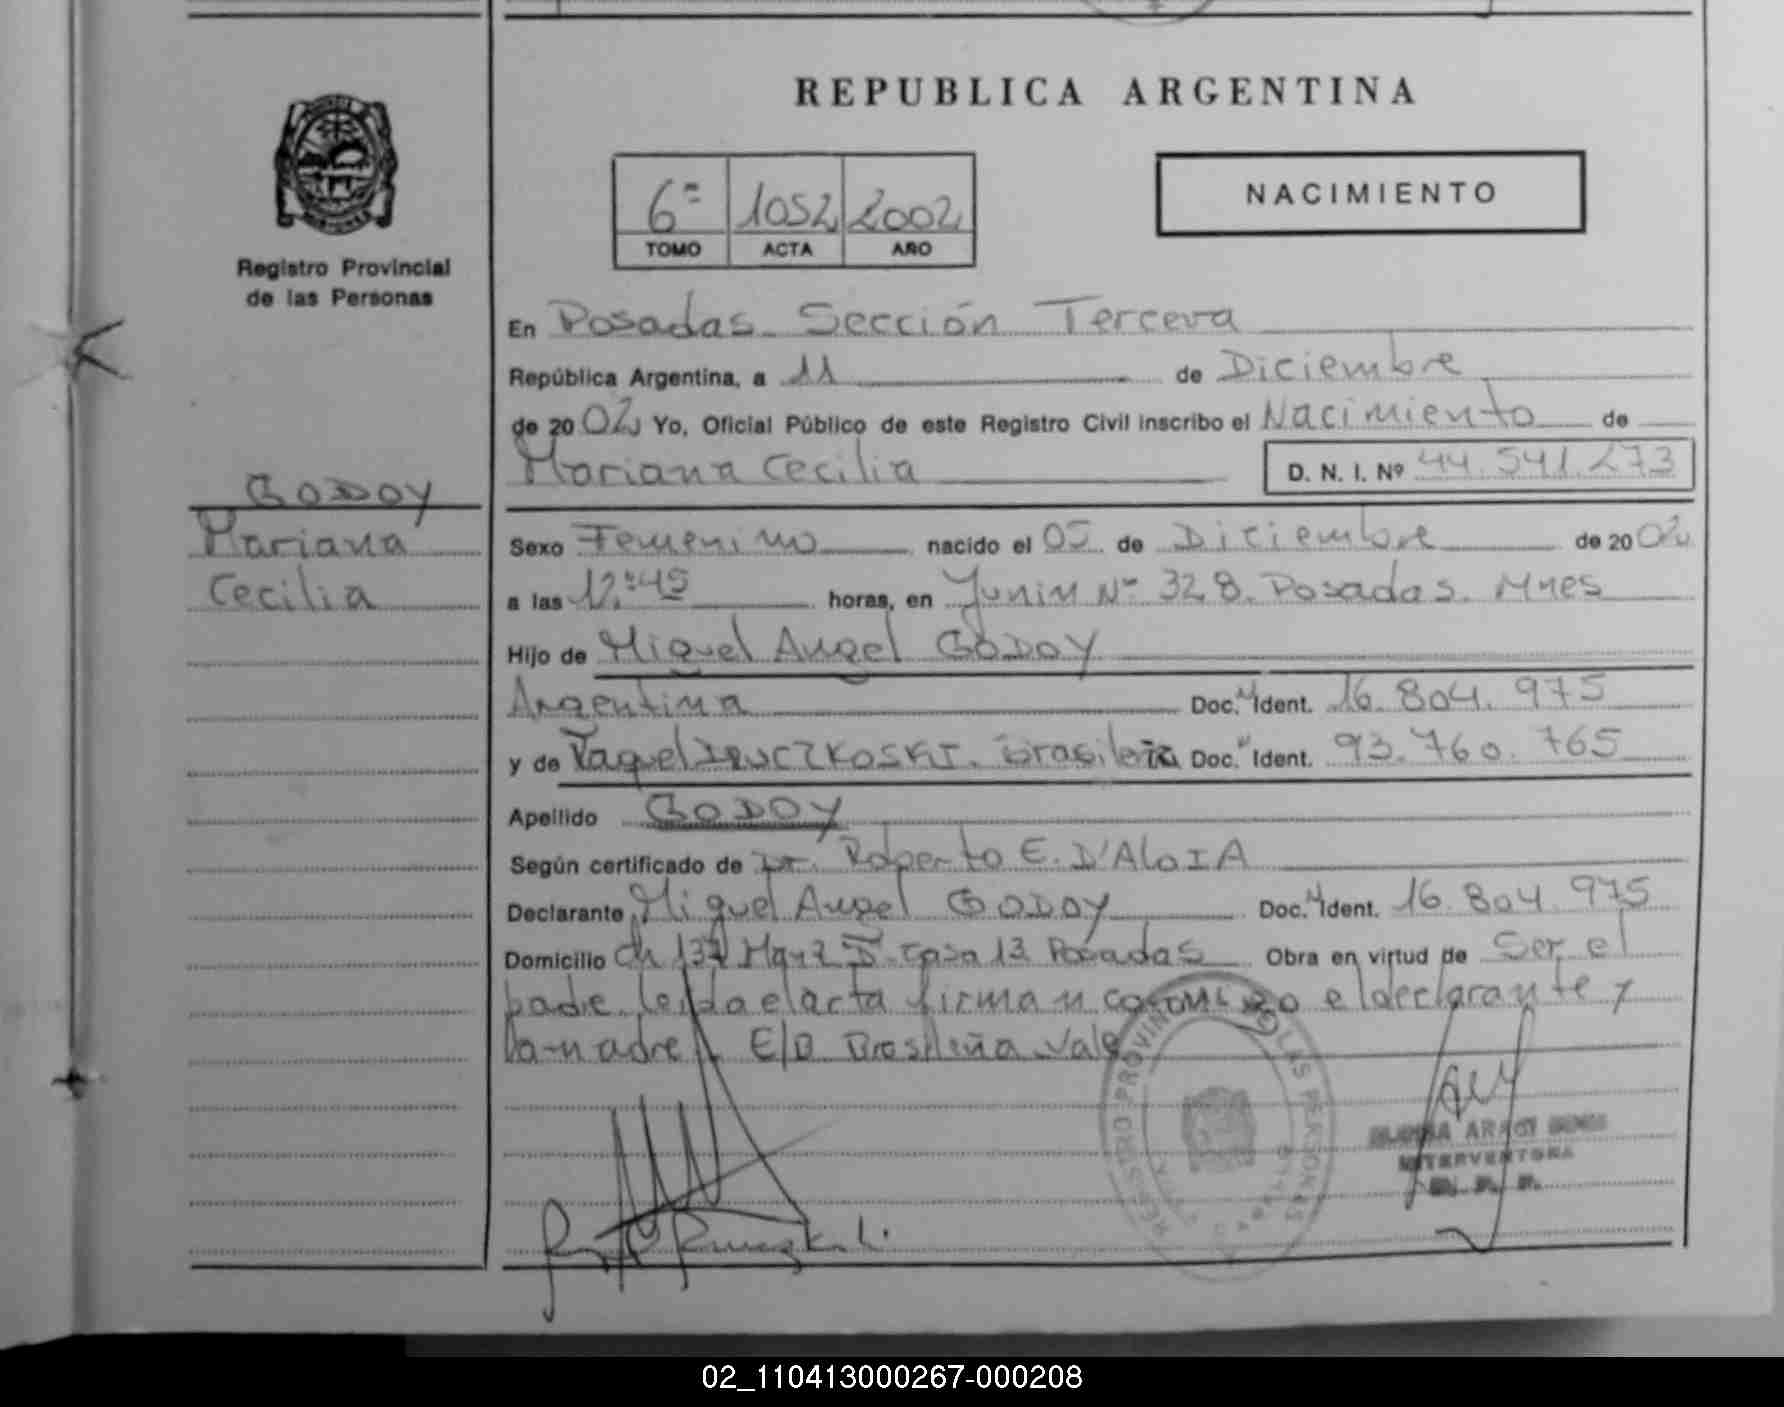 REPUBLICA ARGENTINA
NACIMIENTO
6º 1052 2002
TOMO ACTA AÑO
Registro Provincial
de las Personas
GODOY
Mariana
Cecilia
En Posadas Sección Tercera
República Argentina, a 11 de Diciembre
de 2002 Yo, Oficial Público de este Registro Civil inscribo el Nacimiento de
Mariana Cecilia D. N. I. Nº 44.541.273
Sexo Femenino nacido el 05 de Diciembre de 2002
a las 12:45 horas, en Junin Nº 328. Posadas. Mnes
Hijo de Miguel Angel GODOY
Argentina Doc. Ident. 16.804.975
y de Raquel Brasileña Doc. Ident. 93.760.765
Apellido GODOY
Según certificado de Dr. Roberto E. D'ALOIA
Declarante Miguel Angel GODOY Doc. Ident. 16.804.975
Domicilio Ch 137 Casa 13 Posadas Obra en virtud de Ser el
padre. leida el acta firman conmigo el declarante y
la madre E/D Brasileña Vale
REGISTRO PROVINCIAL DE LAS PERSONAS
INTERVENTORA
02_110413000267-000208